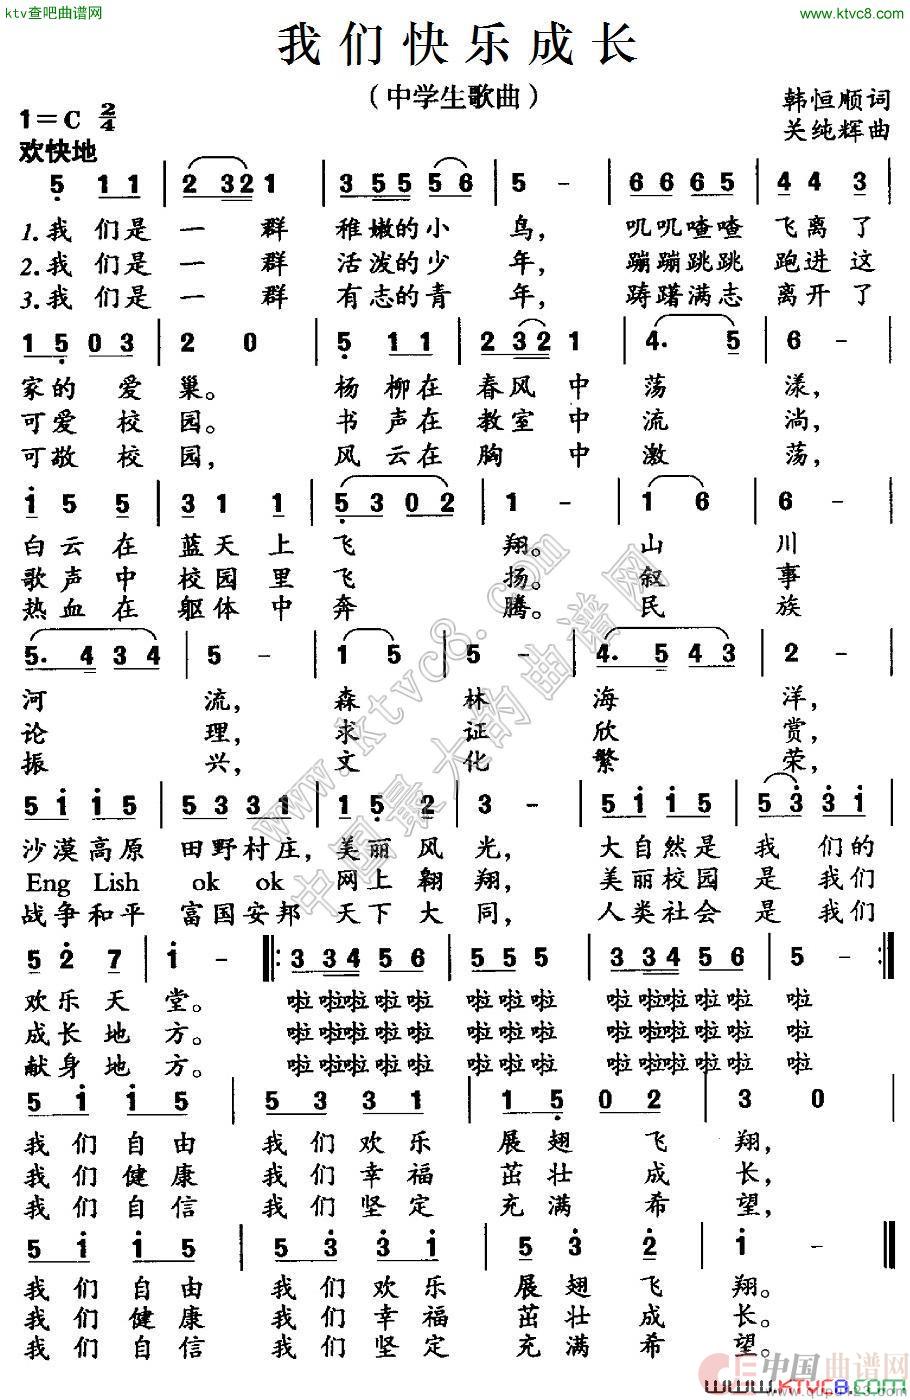 ktv查吧曲谱网
www.ktvc8.com
我们快乐成长
(中学生歌曲)
韩恒顺词
1=C 2/4
关纯辉曲
欢快地
5 1 1 | 2 3 2 1 | 3 5 5 5 6 | 5 - | 6 6 6 5 | 4 4 3 |
1.我 们是 一 群 稚嫩的小 鸟, 叽叽喳喳 飞离了
2.我 们是 一 群 活泼的少 年, 蹦蹦跳跳 跑进这
3.我 们是 一 群 有志的青 年, 踌躇满志 离开了
1 5 0 3 | 2 0 | 5 1 1 | 2 3 2 1 | 4. 5 | 6 - |
家的 爱 巢。 杨 柳在 春风 中 荡 漾,
可爱 校 园。 书 声在 教室 中 流 淌,
可敬 校 园, 风 云在 胸 中 激 荡,
1 5 5 | 3 1 1 | 5 3 0 2 | 1 - | 1 6 | 6 - |
白云 在 蓝天上 飞 翔。 山 川
歌声 中 校园里 飞 扬。 叙 事
热血 在 躯体中 奔 腾。 民 族
5. 4 3 4 | 5 - | 1 5 | 5 - | 4. 5 4 3 | 2 - |
河 流, 森 林 海 洋,
论 理, 求 证 欣 赏,
振 兴, 文 化 繁 荣,
5 1 1 5 | 5 3 3 1 | 1 5 2 | 3 - | 5 1 1 5 | 5 3 3 1 |
沙漠高原 田野村庄, 美丽 风 光, 大自然是 我 们的
Eng Lish ok ok 网上 翱 翔, 美丽校园 是 我们
战争和平 富国安邦 天下 大 同, 人类社会 是 我们
5 2 7 | 1 - |: 3 3 4 5 6 | 5 5 5 | 3 3 4 5 6 | 5 - :|
欢乐 天 堂。 啦 啦啦 啦 啦 啦 啦 啦 啦 啦啦 啦 啦 啦
成长 地 方。 啦 啦啦 啦 啦 啦 啦 啦 啦 啦啦 啦 啦 啦
献身 地 方。 啦 啦啦 啦 啦 啦 啦 啦 啦 啦啦 啦 啦 啦
5 1 1 5 | 5 3 3 1 | 1 5 0 2 | 3 0 |
我 们 自 由 我 们 欢 乐 展 翅 飞 翔,
我 们 健 康 我 们 幸 福 茁 壮 成 长,
我 们 自 信 我 们 坚 定 充 满 希 望,
5 1 1 5 | 5 3 3 1 | 5 3 2 | 1 - ‖
我 们 自 由 我 们 欢 乐 展 翅 飞 翔。
我 们 健 康 我 们 幸 福 茁 壮 成 长。
我 们 自 信 我 们 坚 定 充 满 希 望。
www.ktvc8.com
中国最大的曲谱网
中国曲谱网
www.KTVC8.COM